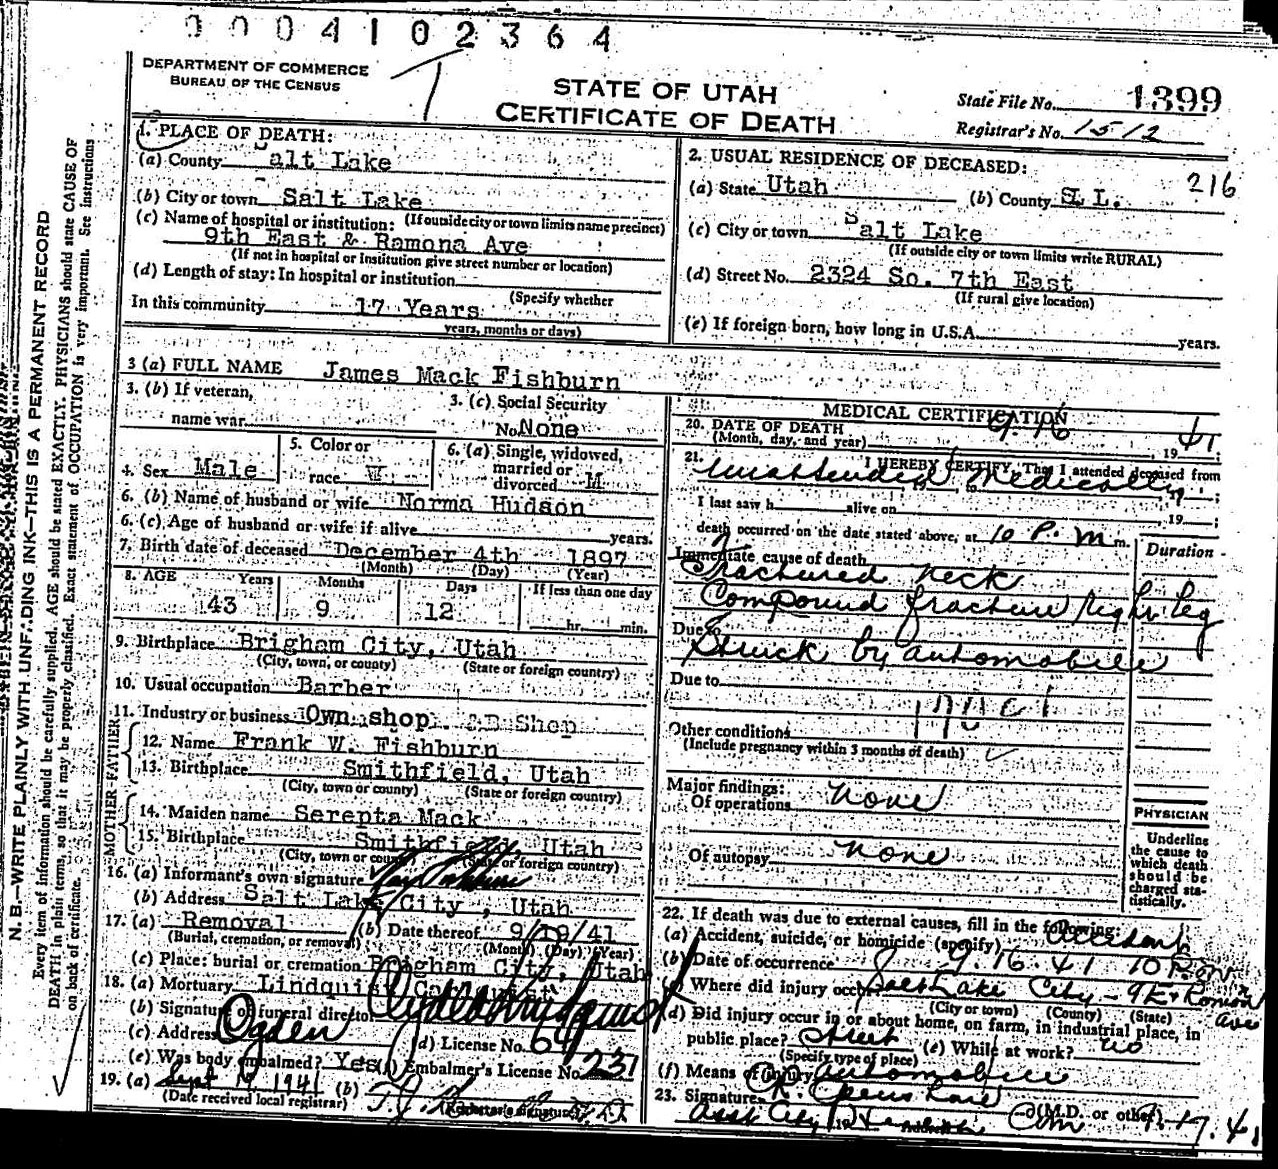 0004102364
DEPARTMENT OF COMMERCE
BUREAU OF THE CENSUS
STATE OF UTAH
CERTIFICATE OF DEATH
State File No. 1399
Registrar's No. 1512
1. PLACE OF DEATH:
(a) County alt Lake
(b) City or town Salt Lake
(If outside city or town limits name precinct)
(c) Name of hospital or institution:
9th East & Ramona Ave
(If not in hospital or institution give street number or location)
(d) Length of stay: In hospital or institution
(Specify whether
In this community 17 Years
years, months or days)
2. USUAL RESIDENCE OF DECEASED:
216
(a) State Utah (b) County S. L.
(c) City or town Salt Lake
(If outside city or town limits write RURAL)
(d) Street No. 2324 So. 7th East
(If rural give location)
(e) If foreign born, how long in U.S.A. years.
3 (a) FULL NAME James Mack Fishburn
3. (b) If veteran,
name war
3. (c) Social Security
No. None
4. Sex Male
5. Color or
race W
6. (a) Single, widowed,
married or
divorced M
6. (b) Name of husband or wife Norma Hudson
6. (c) Age of husband or wife if alive years.
7. Birth date of deceased December 4th 1897
(Month) (Day) (Year)
8. AGE Years Months Days If less than one day
43 9 12 hr. min.
9. Birthplace Brigham City, Utah
(City, town, or county) (State or foreign country)
10. Usual occupation Barber
11. Industry or business Own shop
FATHER
12. Name Frank W. Fishburn
13. Birthplace Smithfield, Utah
(City, town or county) (State or foreign country)
MOTHER
14. Maiden name Serepta Mack
15. Birthplace Smithfield, Utah
(City, town or county) (State or foreign country)
16. (a) Informant's own signature
(b) Address Salt Lake City, Utah
17. (a) Removal (b) Date thereof 9/19/41
(Burial, cremation, or removal) (Month) (Day) (Year)
(c) Place: burial or cremation Brigham City, Utah
18. (a) Mortuary Lindquist
(b) Signature of funeral director
(c) Address Ogden (d) License No. 64
(e) Was body embalmed? Yes (f) Embalmer's License No. 237
19. (a) Sept 19 1941 (b)
(Date received local registrar) (Registrar's signature)
MEDICAL CERTIFICATION
20. DATE OF DEATH
(Month, day, and year) 9. 16, 1941
21. I HEREBY CERTIFY, That I attended deceased from
Unattended Medically
I last saw h alive on , 19 ;
death occurred on the date stated above, at 10 P. M m.
Duration
Immediate cause of death
Fractured neck
Compound fracture right leg
Due to
Struck by automobile
Due to
Other conditions
(Include pregnancy within 3 months of death)
Major findings:
Of operations none
Of autopsy none
PHYSICIAN
Underline
the cause to
which death
should be
charged sta-
tistically.
22. If death was due to external causes, fill in the following:
(a) Accident, suicide, or homicide (specify) accident
(b) Date of occurrence 9. 16. 41 10 P.M.
(c) Where did injury occur? Salt Lake City - 9E & Ramona Ave
(City or town) (County) (State)
(d) Did injury occur in or about home, on farm, in industrial place, in
public place? Street (e) While at work? no
(Specify type of place)
(f) Means of injury automobile
23. Signature (M.D. or other)
Asst City Address 9-17.41
N. B.—WRITE PLAINLY WITH UNFADING INK—THIS IS A PERMANENT RECORD
Every item of information should be carefully supplied. AGE should be stated EXACTLY. PHYSICIANS should state CAUSE OF
DEATH in plain terms, so that it may be properly classified. Exact statement of OCCUPATION is very important. See instructions
on back of certificate.